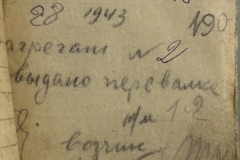 28 1943
190
агрегат № 2
выдано перевалке
р/м 12
возчик